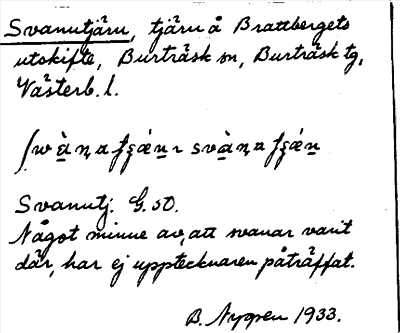 Svanutjärn, tjärn å Brattbergets
utskifte, Burträsk sn, Burträsk tg,
Västerb. l.
Svanutj. G.50.
Något minne av, att svanar varit
där, har ej upptecknaren påträffat.
B. Nygren 1933.